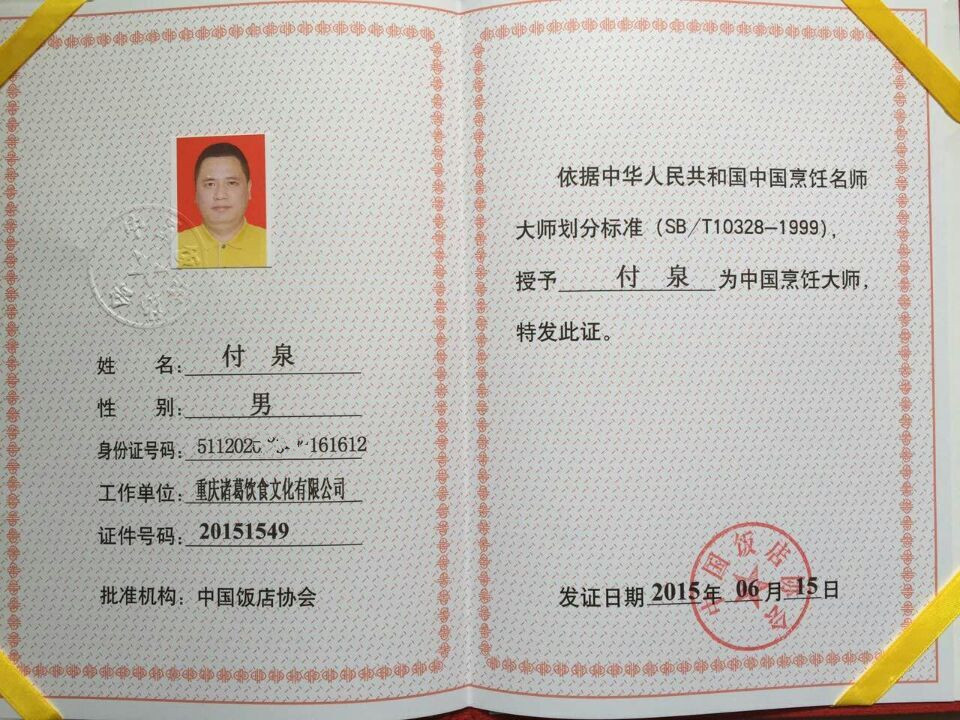 姓 名: 付 泉
性 别: 男
身份证号码: 511202 161612
工作单位: 重庆诸葛饮食文化有限公司
证件号码: 20151549
批准机构: 中国饭店协会
依据中华人民共和国中国烹饪名师
大师划分标准 (SB/T10328-1999),
授予 付 泉 为中国烹饪大师,
特发此证。
发证日期 2015年 06月 15日
中国饭店协会